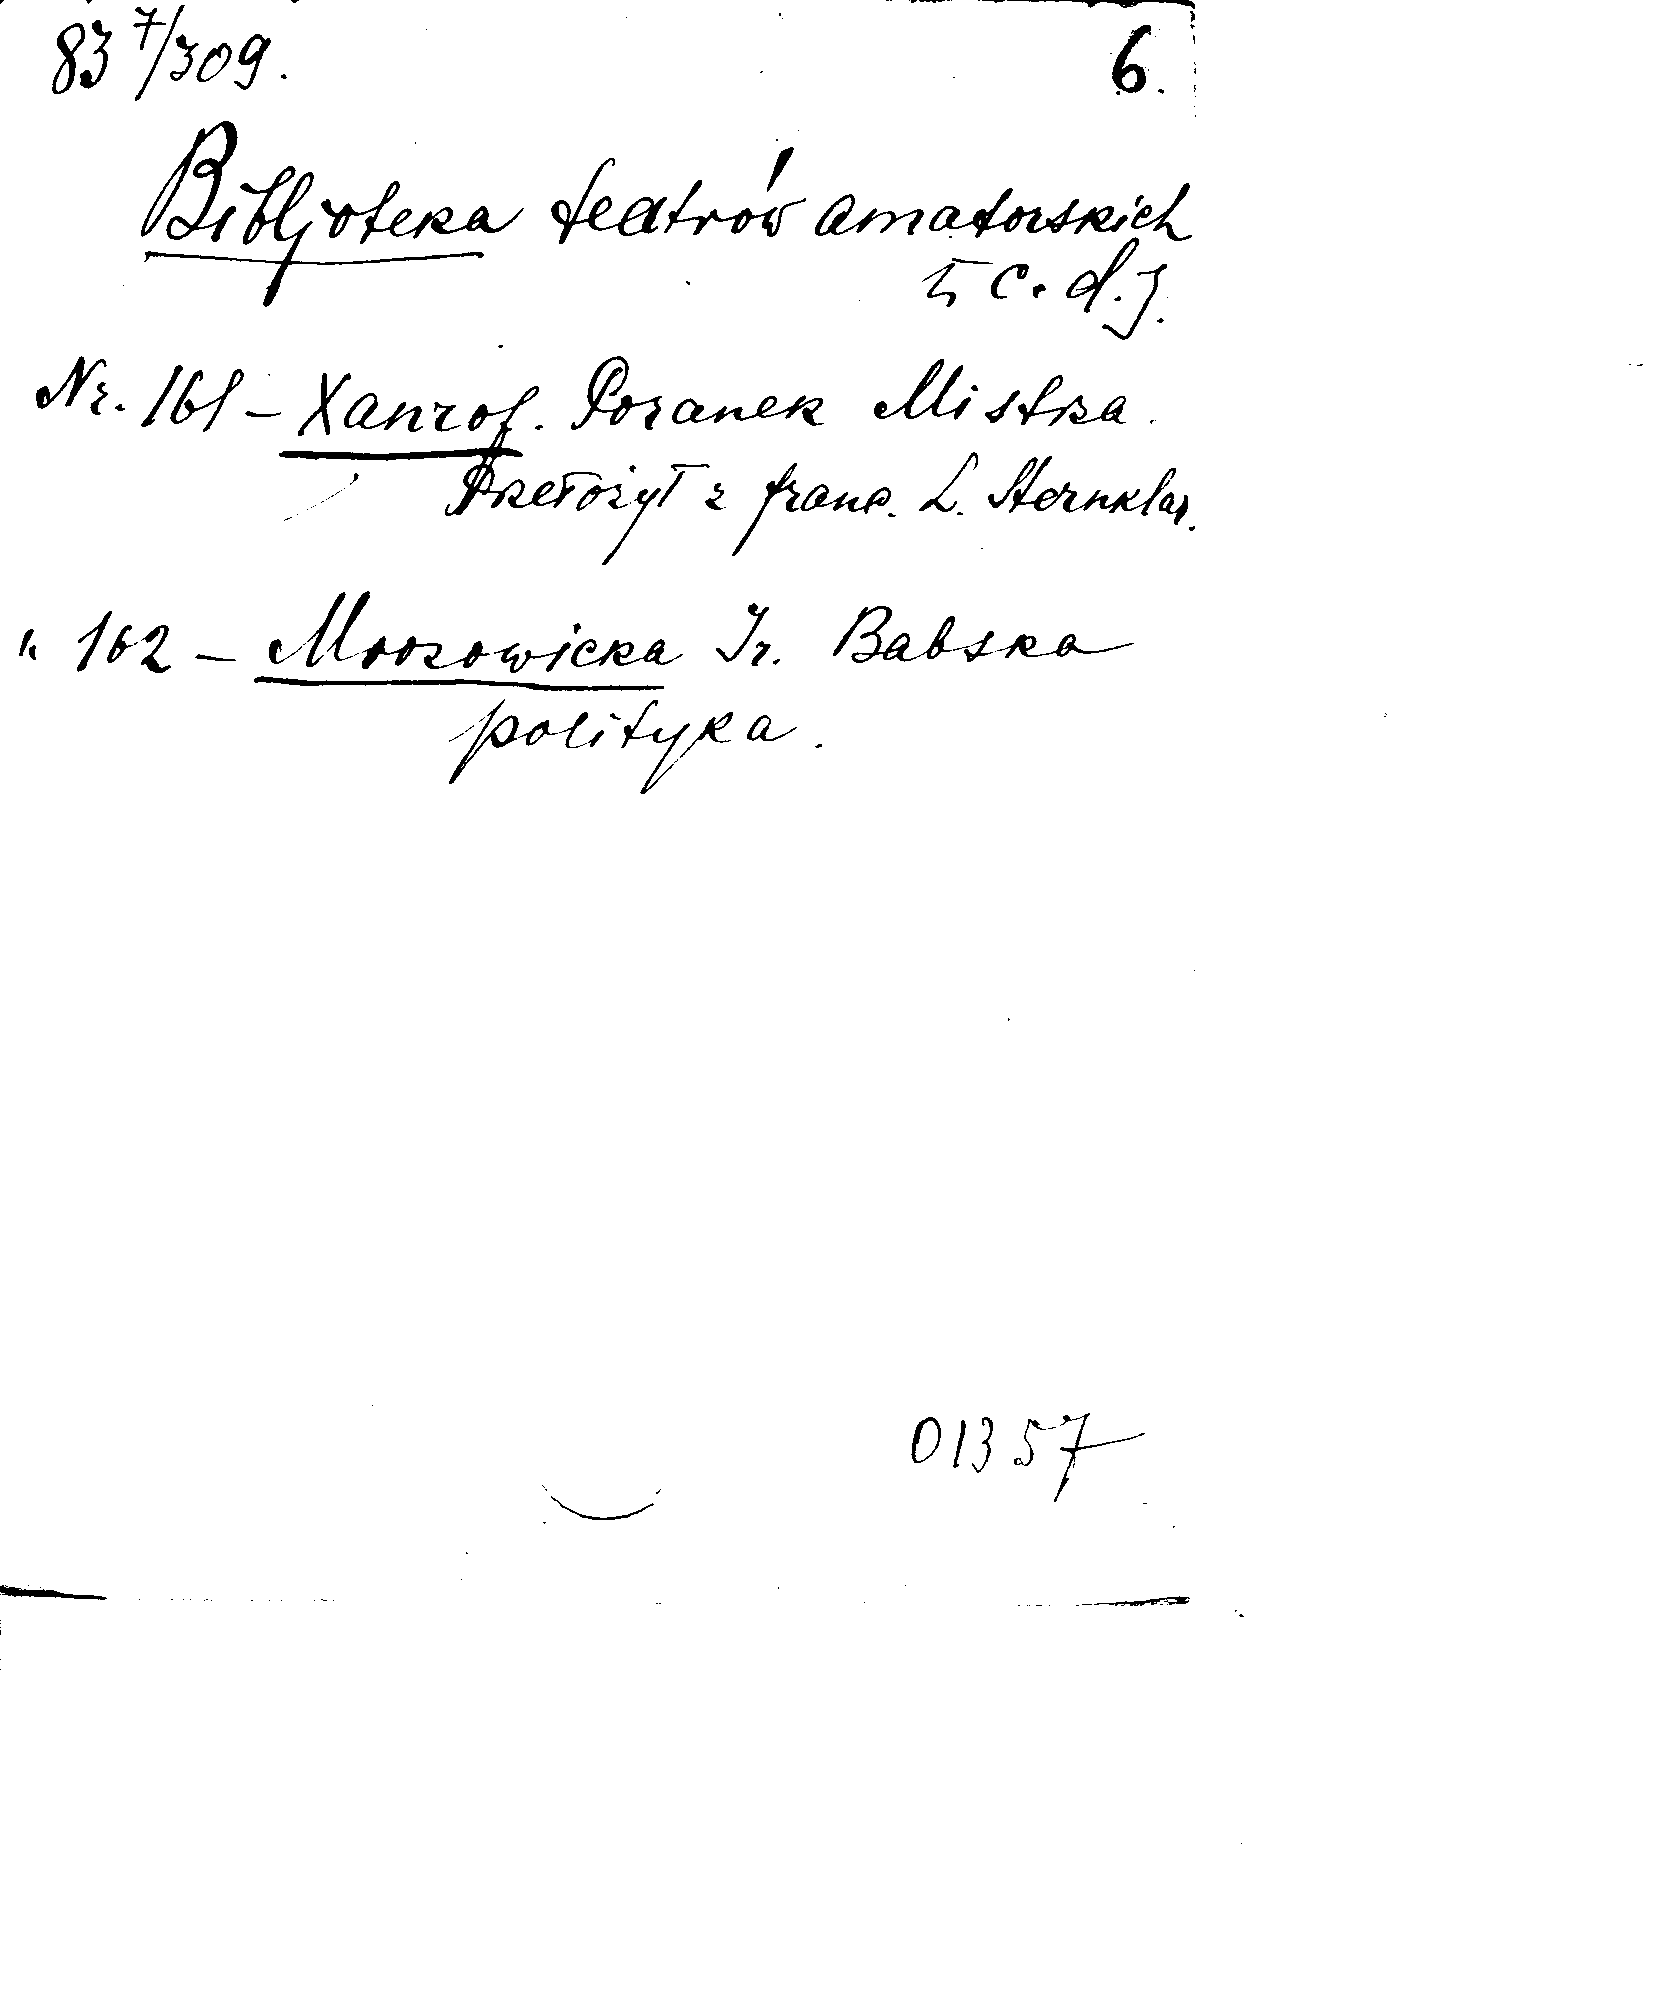 83 7/309. 6.
Bibljoteka teatrów amatorskich
5 c. d.
Nr. 161 - Xanrof. Poranek Mistrza.
Przełożył z franc. L. Sternklar.
" 162 - Mrozowicka Ir. Babska
polityka.
01357